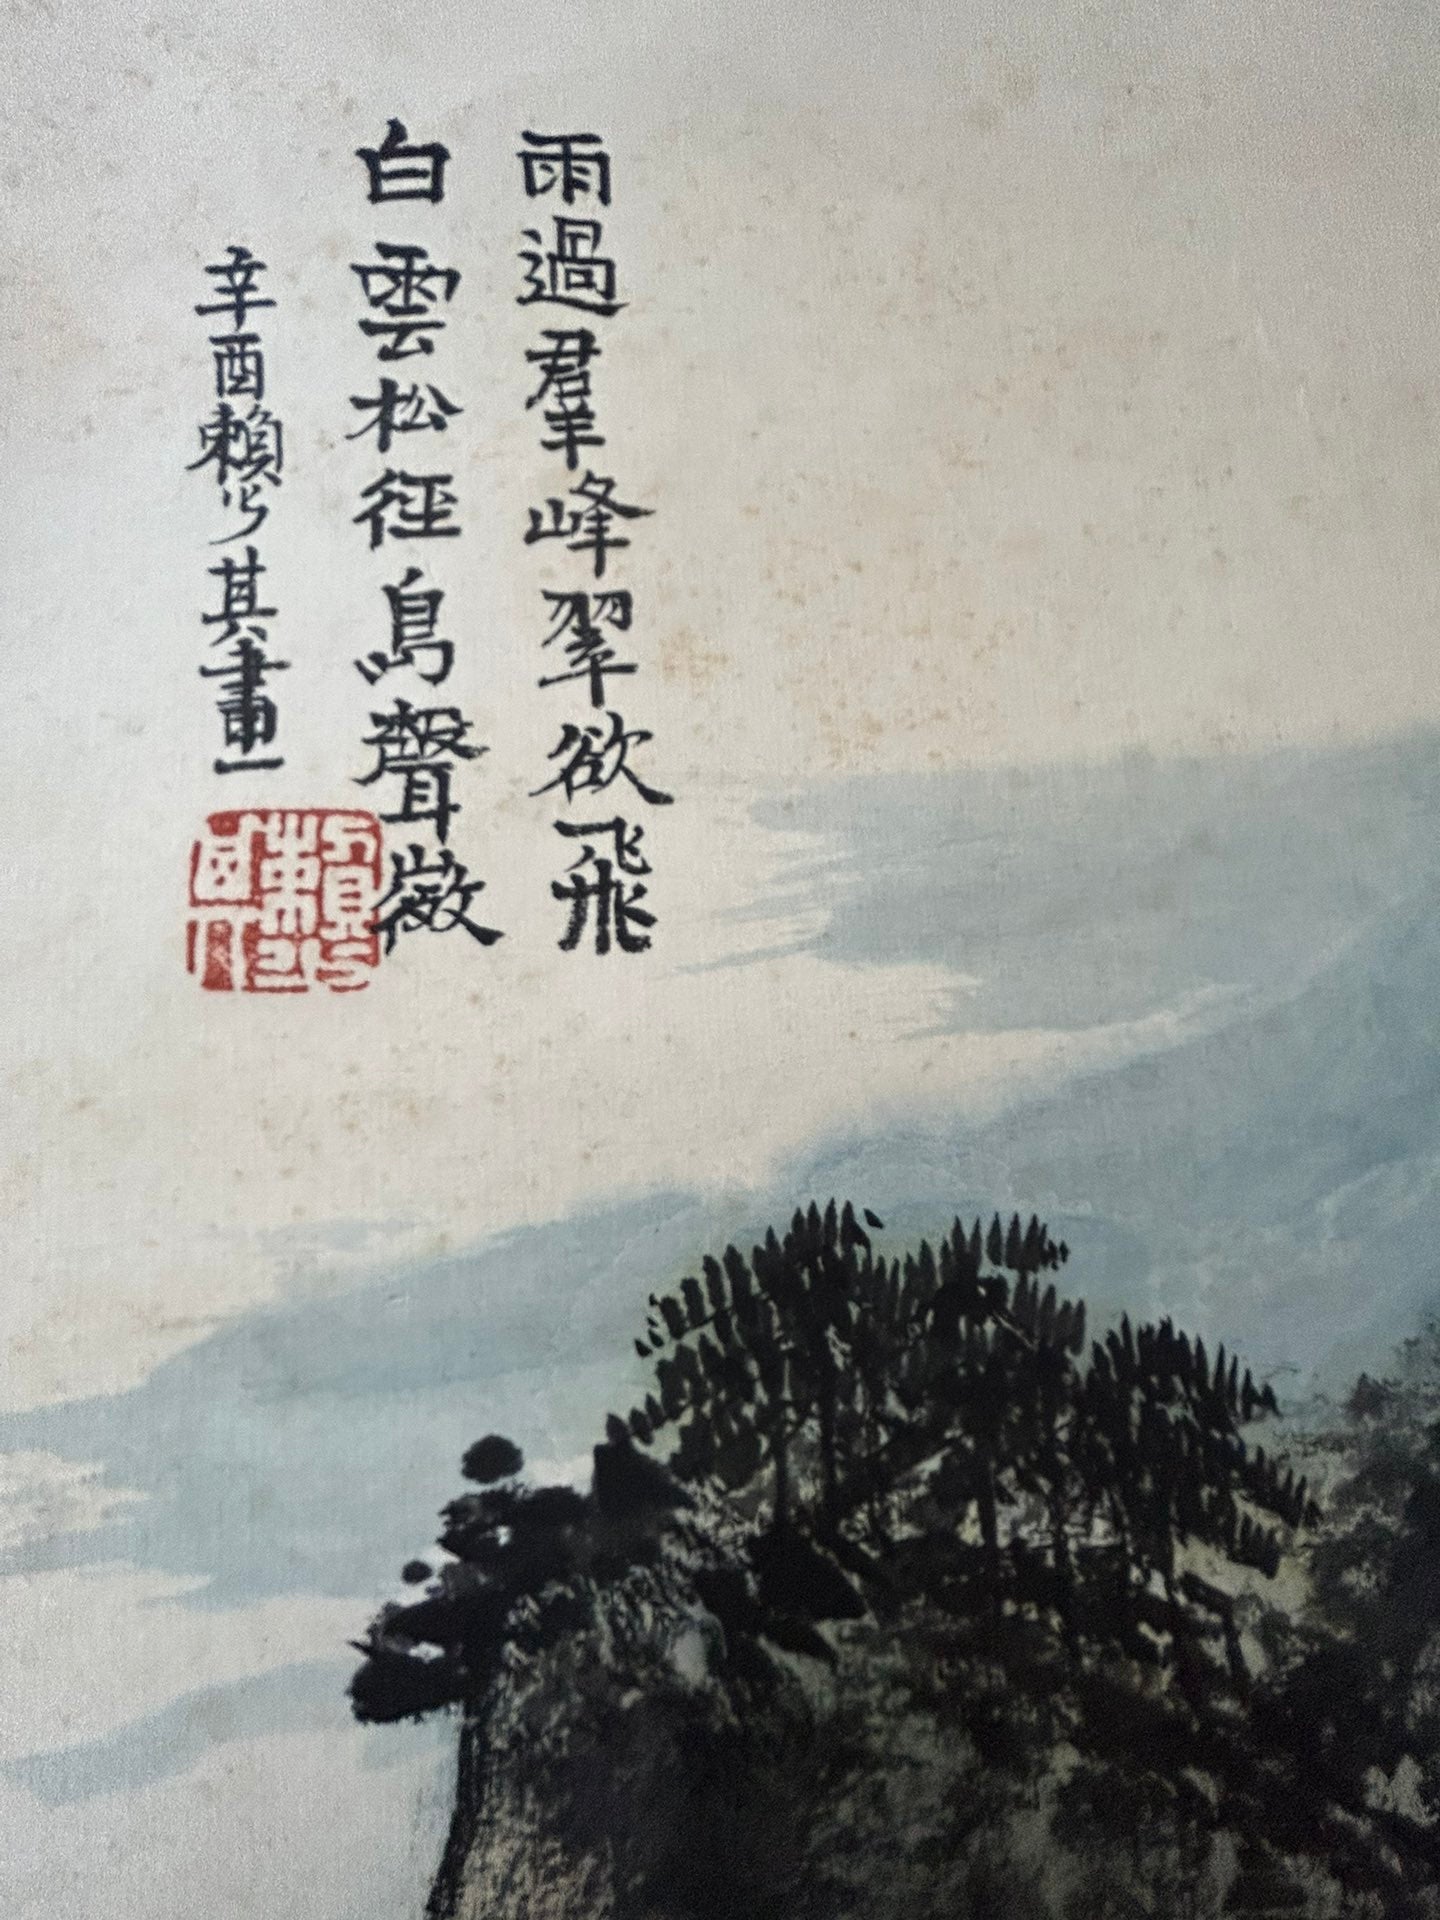 雨過羣峰翠欲飛
白雲松徑鳥聲微
辛酉賴少其畫